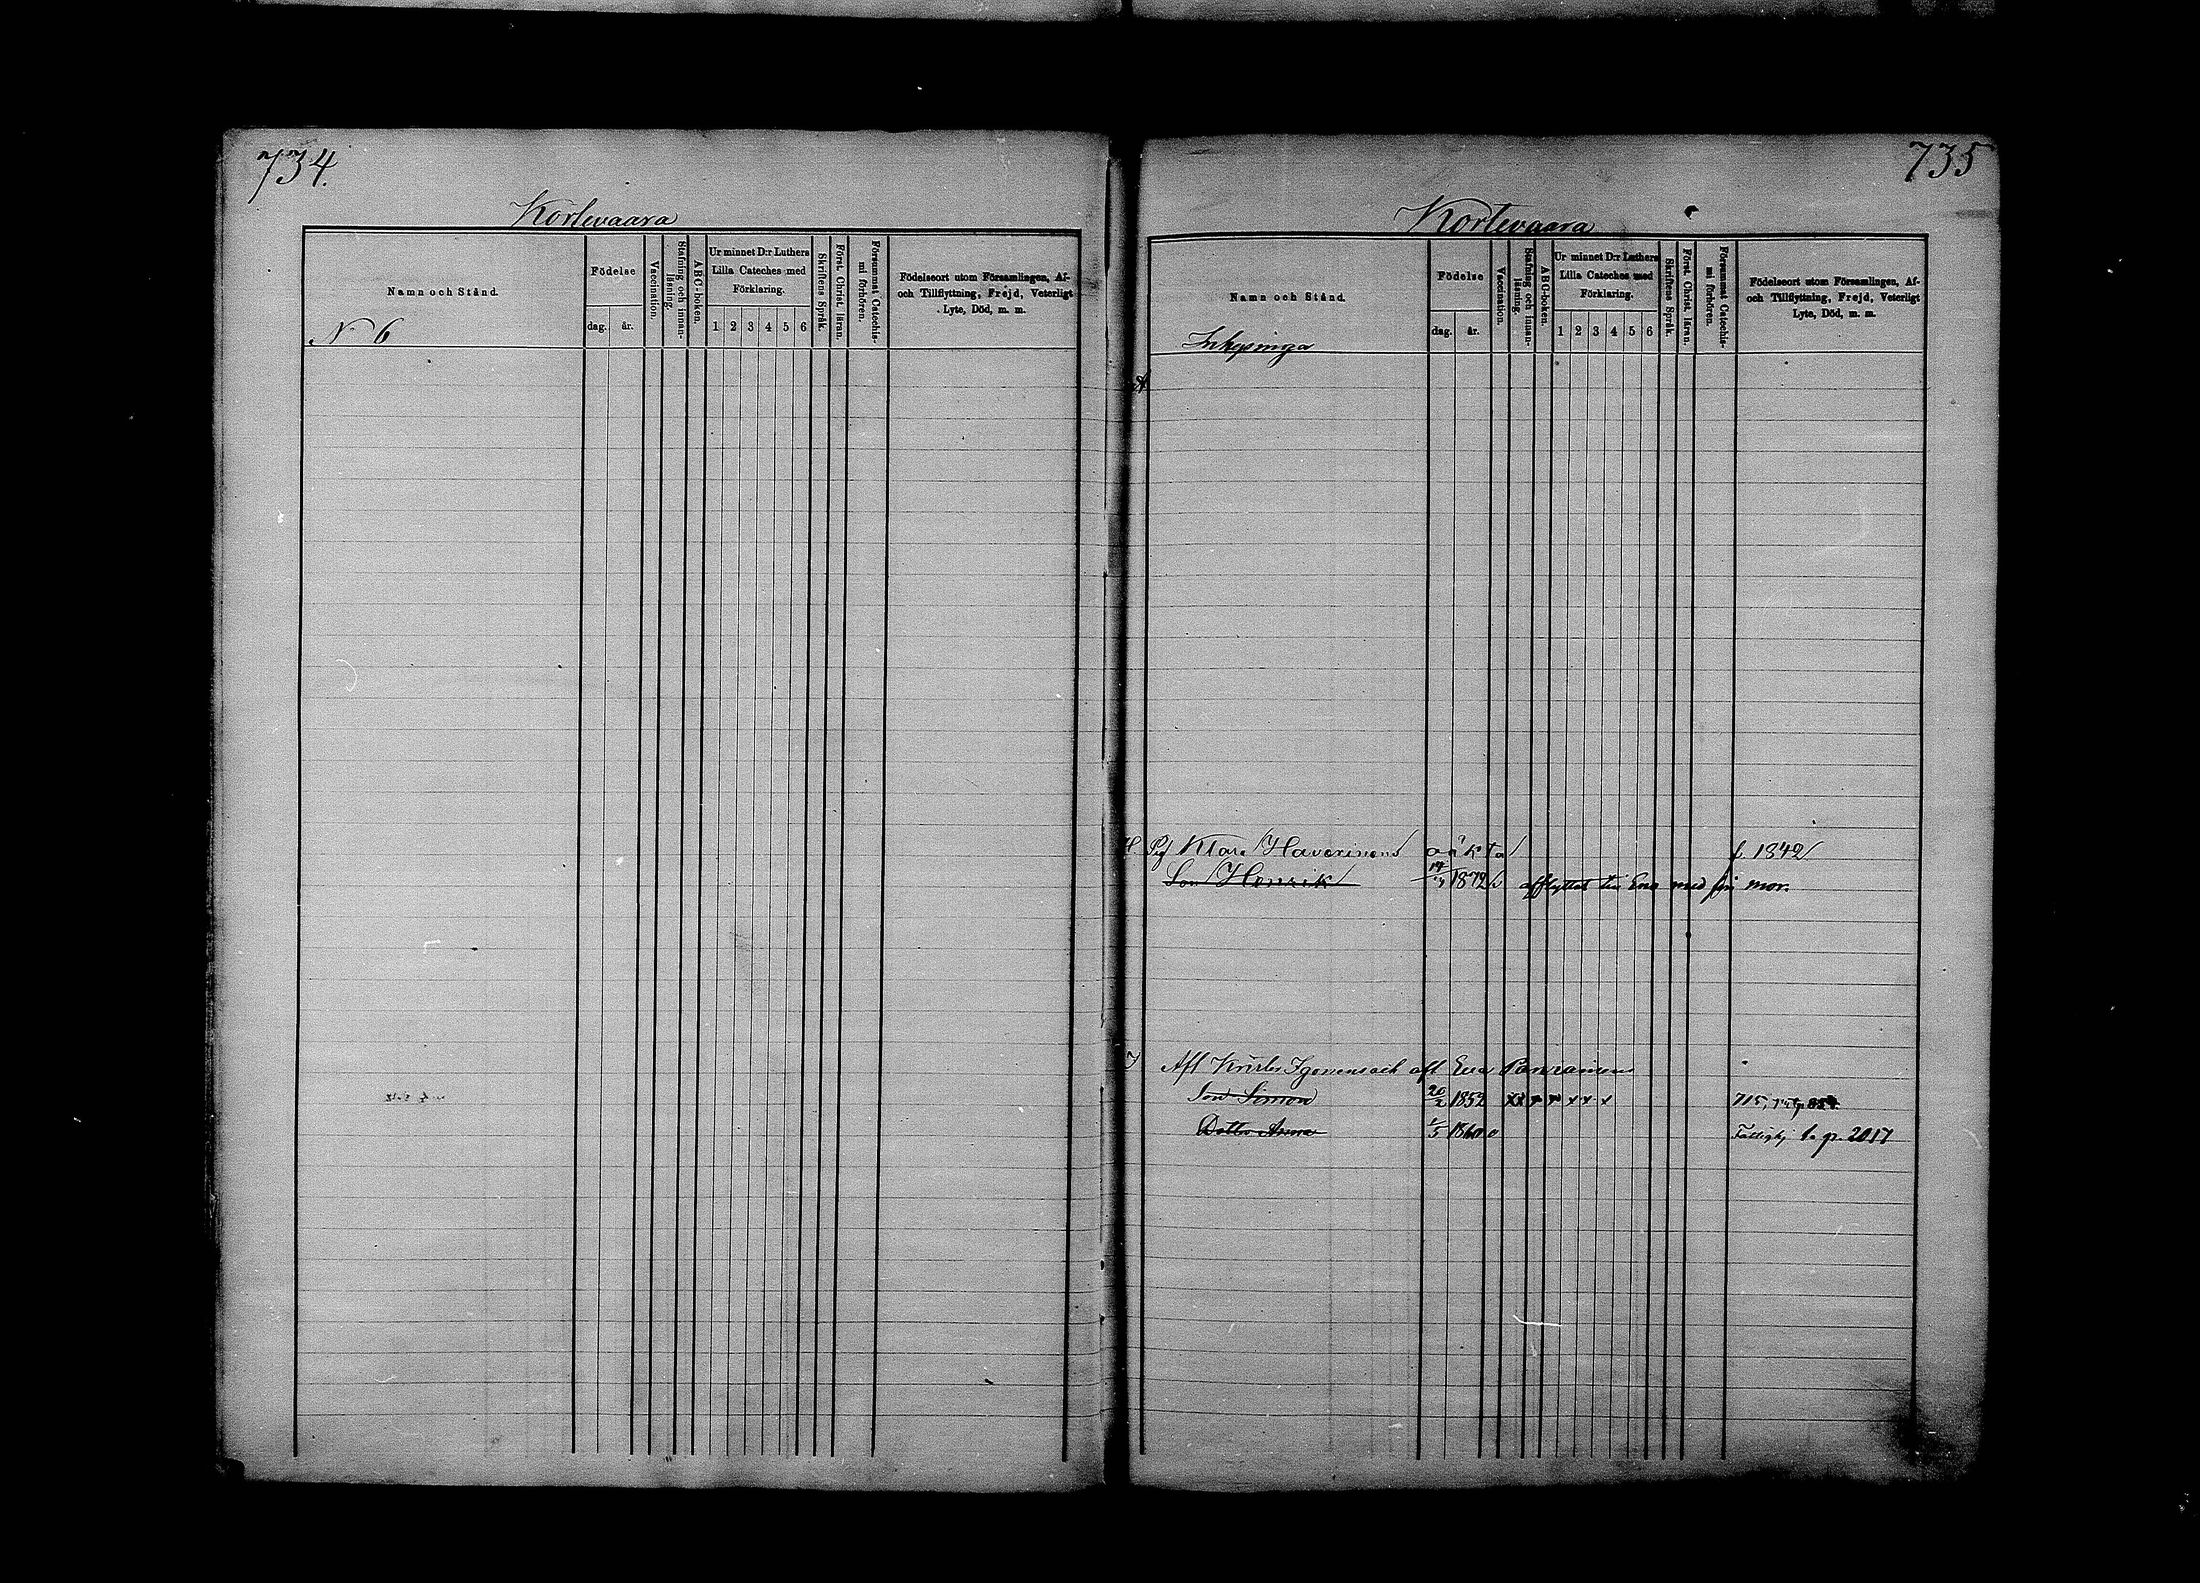 734.
Kortevaara
Namn och Stånd.
Födelse
dag. år.
Vaccination.
Stafning och innan-läsning.
ABC-boken.
Ur minnet D:r Luthers
Lilla Cateches med
Förklaring.
1 2 3 4 5 6
Skriftens Språk.
Först. Christ. läran.
Försummat Catechis-
mi förhören.
Födelseort utom Församlingen, Af-
och Tillflyttning, Frejd, Veterligt
Lyte, Död, m. m.
N 6
735
Kortevaara
Namn och Stånd.
Födelse
dag. år.
Vaccination.
Stafning och innan-läsning.
ABC-boken.
Ur minnet D:r Luthers
Lilla Cateches med
Förklaring.
1 2 3 4 5 6
Skriftens Språk.
Först. Christ. läran.
Försummat Catechis-
mi förhören.
Födelseort utom Församlingen, Af-
och Tillflyttning, Frejd, Veterligt
Lyte, Död, m. m.
H. Pig Klara Haverinens oäkta f. 1842
Son Henrik 1872 afflyttat till Eno med sin mor.
Afl Krister och afl Eva
Son Simon 20/2 1852 x x x x x x x 715,
Dotter Anna 1/5 1860 p. 2017